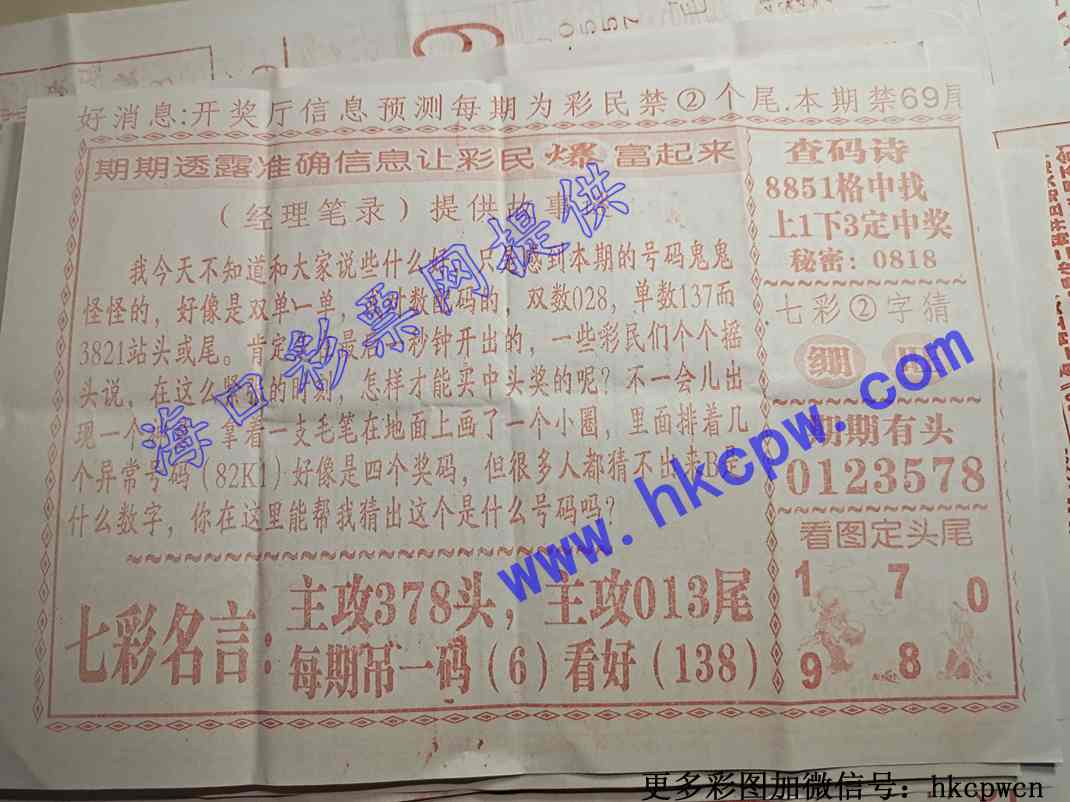 好消息:开奖厅信息预测每期为彩民禁②个尾.本期禁69尾
期期透露准确信息让彩民爆富起来
(经理笔录)提供故事
我今天不知道和大家说些什么好,只是感到本期的号码鬼鬼
怪怪的,好像是双单一单,对数配码的,双数028,单数137而
3821站头或尾。肯定最后秒钟开出的,一些彩民们个个摇
头说,在这么紧张的时刻,怎样才能买中头奖的呢?不一会儿出
现一个拿着一支毛笔在地面上画了一个小圈,里面排着几
个异常号码(82K1)好像是四个奖码,但很多人都猜不出来B是
什么数字,你在这里能帮我猜出这个是什么号码吗?
七彩名言:
主攻378头,主攻013尾
每期吊一码(6)看好(138)
查码诗
8851格中找
上1下3定中奖
秘密:0818
七彩②字猜
期期有头
0123578
看图定头尾
1 7 0
9 8
海口彩票网提供
www.hkcpw.com
更多彩图加微信号:hkcpwcn